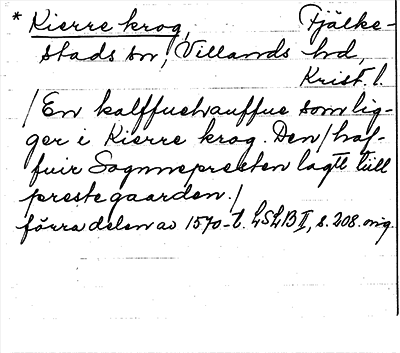 * Kierre krog, Fjälke-
stads sn, Villands hd,
Krist. l.
/En kalffuehauffue som lig-
ger i Kierre krog. Den/haf-
fuir Sognnepresten lagtt till
prestegaarden./
förra delen av 1570-t. LSLB II, s. 208. orig.